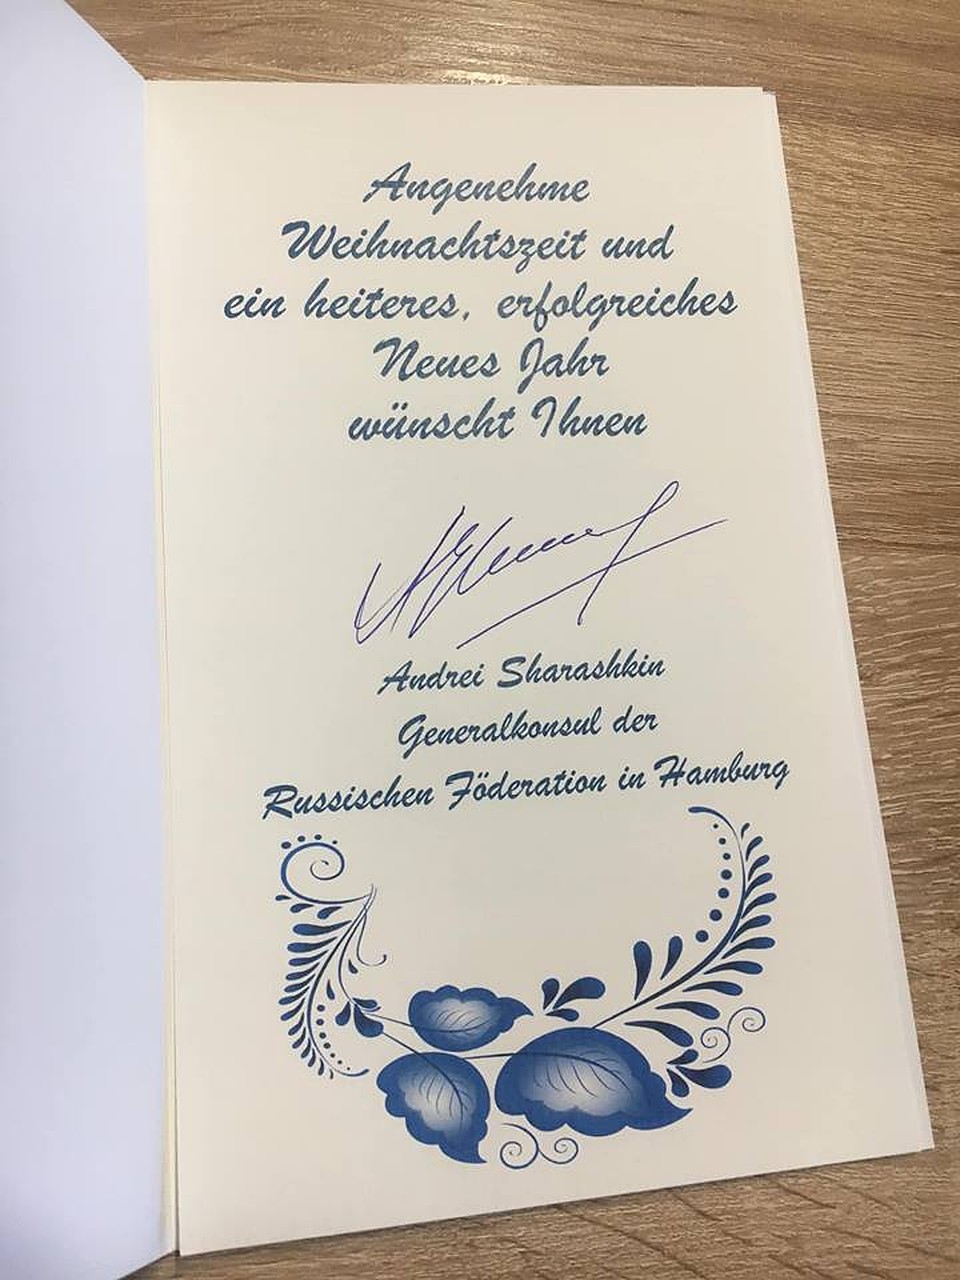 Angenehme
Weihnachtszeit und
ein heiteres, erfolgreiches
Neues Jahr
wünscht Ihnen
Andrei Sharashkin
Generalkonsul der
Russischen Föderation in Hamburg